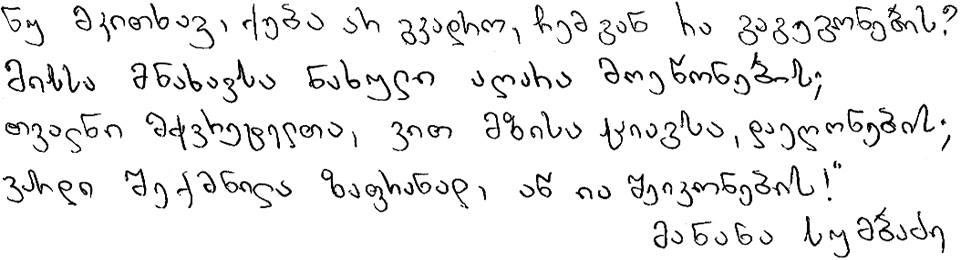 ნუ მკითხავ, ქება არ გვადრო, ჩემგან რა გაგეგონების?
მისსა მნახავსა ნახული აღარა მოეწონების;
თვალნი მჭვრეტელთა, ვით მზისა ციაგსა, დაეღონების;
ვარდი შექმნილა ზაფრანად, აწ ია შეიკონების!"
მანანა სუმბაძე